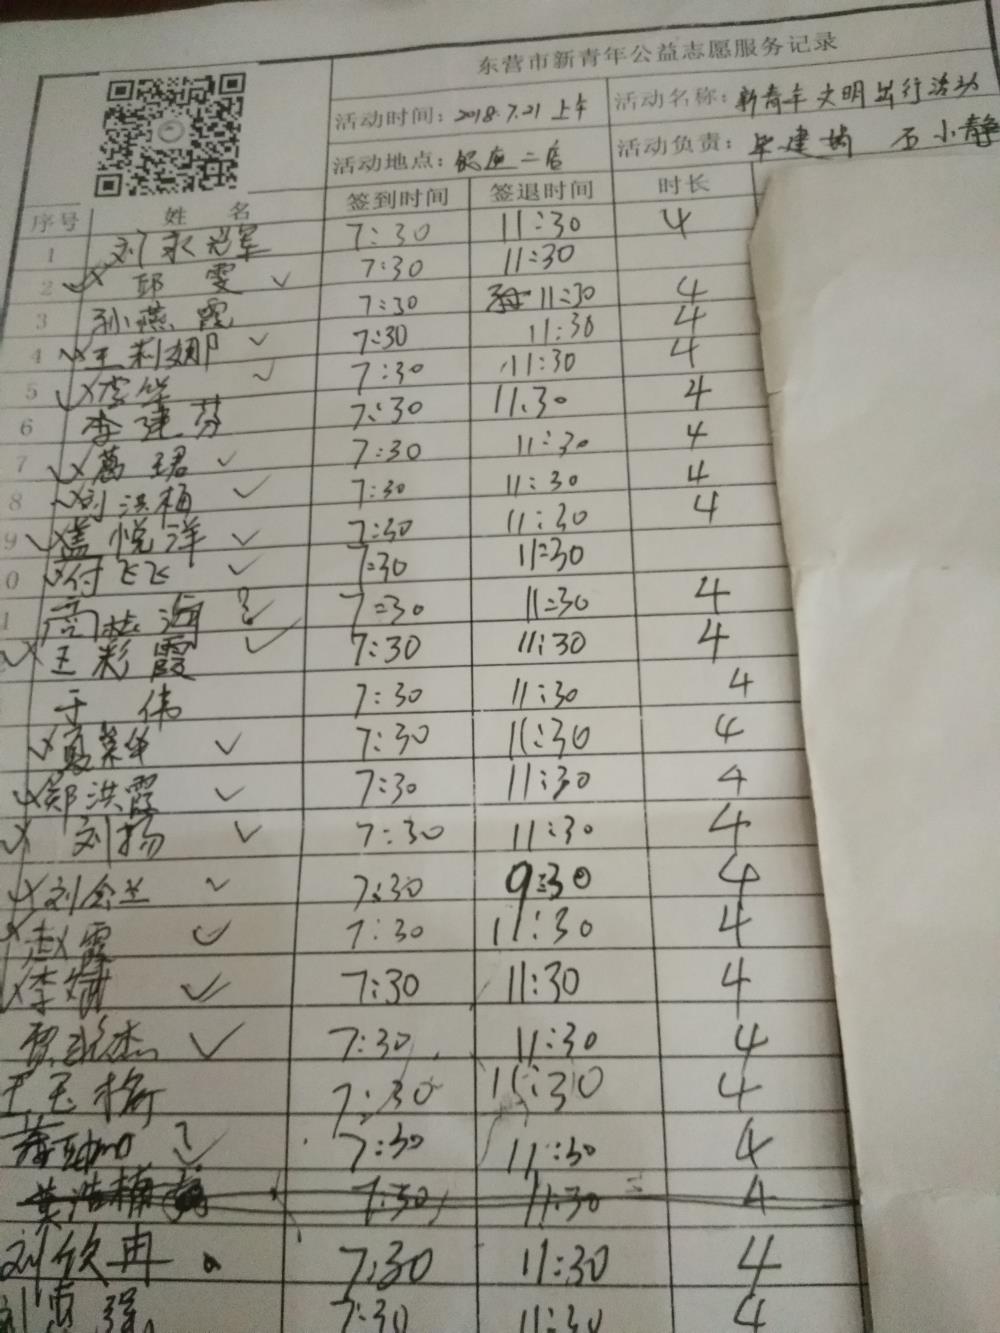 东营市新青年公益志愿服务记录
活动时间: 2018.7.21 上午 活动名称: 新青年文明出行活动
活动地点: 银座二店 活动负责: 毕建 石小静
序号 姓名 签到时间 签退时间 时长
1 刘永冠军 7:30 11:30 4
2 邱雯 7:30 11:30
3 孙燕霞 7:30 11:30 4
4 王莉娜 7:30 11:30 4
5 李华 7:30 11:30 4
6 李建芬 7:30 11.30 4
7 葛珺 7:30 11:30 4
8 刘洪梅 7:30 11:30 4
9 盖悦洋 7:30 11:30 4
0 付飞飞 7:30 11:30
1 高海 ? 7:30 11:30 4
王彩霞 7:30 11:30 4
于伟 7:30 11:30 4
夏荣华 7:30 11:30 4
郑洪霞 7:30 11:30 4
刘扬 7:30 11:30 4
刘金兰 7:30 9:30 4
赵霞 7:30 11:30 4
李斌 7:30 11:30 4
贾杰 7:30 11:30 4
王玉梅 7:30 11:30 4
? 7:30 11:30 4
黄浩楠 7:30 11:30 4
刘欣冉 7:30 11:30 4
刘惠强 7:30 11:30 4